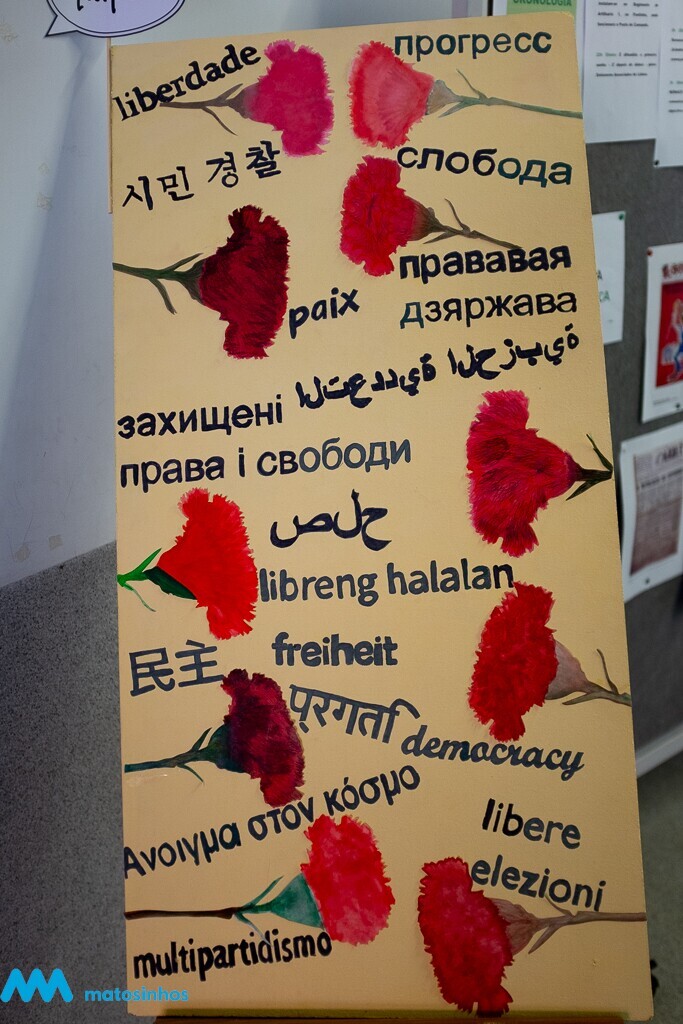 CRONOLOGIA
liberdade
прогресс
시민 경찰
слобода
прававая
дзяржава
paix
التعددية الحزبية
захищені
права і свободи
صلح
libreng halalan
民主
freiheit
प्रगति
democracy
Ανοιγμα στον κόσμο
libere
elezioni
multipartidismo
matosinhos